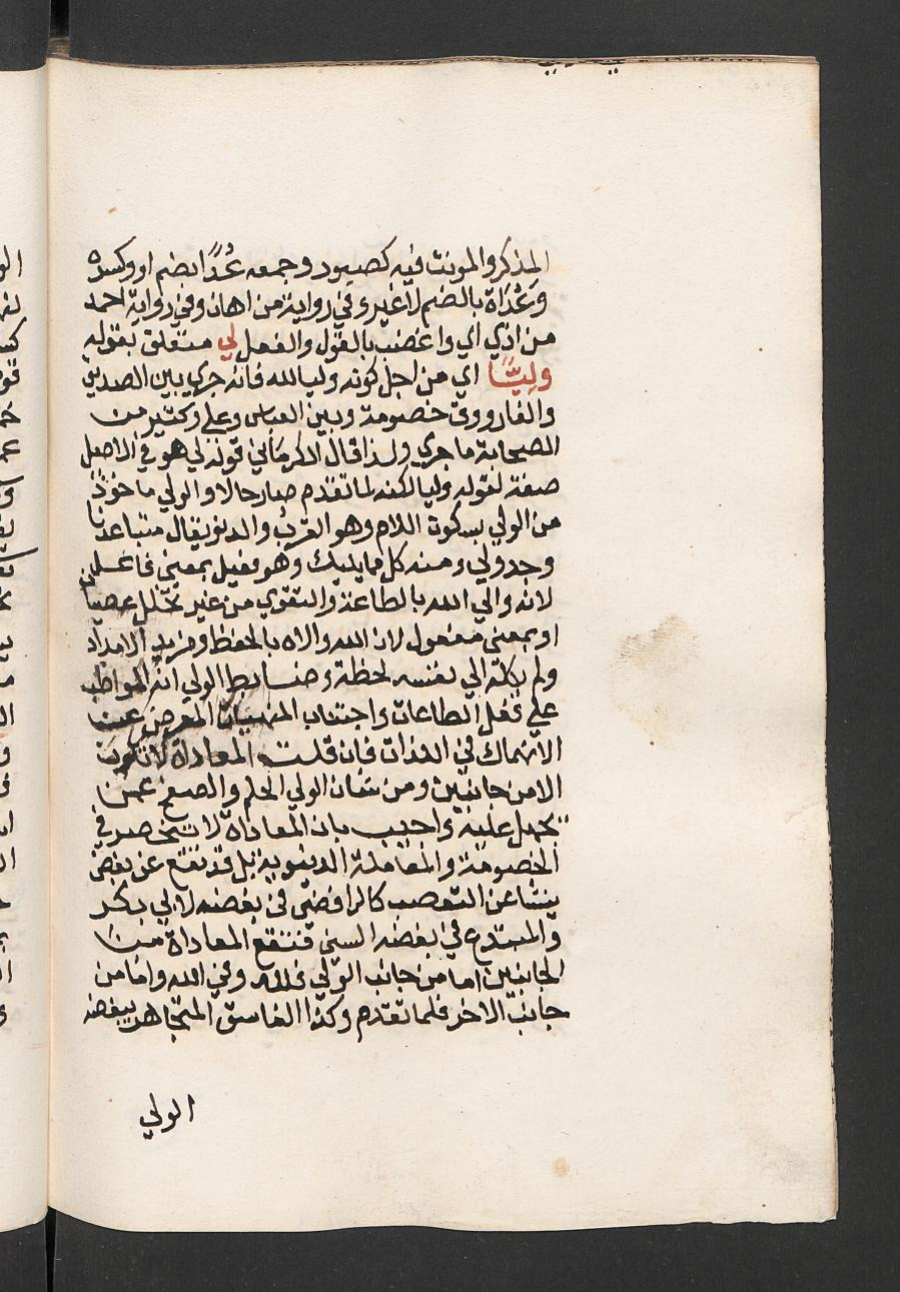 المذكر والمونث فيه كصبور وجمعه عُدًا بضم او وكسره
وعُدَاة بالضم لا غير وفي رواية من اهان وفي رواية احمد
من اذي اي واغضب بالقول والفعل لي متعلق بقوله
وليًّا اي من اجل كونه وليا لله فانه جري بين الصديق
والفاروق خصومة وبين العباس وعلي وكثير من
الصحابة ما جري ولذا قال الكرماني قوله لي هو في الاصل
صفة لقوله وليا لكنه لما تقدم صار حالا والولي ماخوذ
من الولي بسكون اللام وهو القرب والدنو يقال متباعدنا
وجد ولي ومنه كل مما يليك وهو فعيل بمعني فاعل
لانه والي الله بالطاعة والتقوي من غير تخلل عصيا
او بمعني مفعول لان الله والاه بالحفظ ومزيد الامداد
ولم يكله الي نفسه لحظة وضابط الولي انه المواظب
علي فعل الطاعات واجتناب المنهيات المعرض عن
الانهماك في اللذات فان قلت المعاداة لا تكون
الا من جانبين ومن شان الولي الحلم والصفح عمن
يجهل عليه واجيب بان المعاداة لا تنحصر في
الخصومة والمعاملة الدنيوية بل قد تقع عن بغض
ينشا عن التعصب كالرافضي في بغضه لابي بكر
والمبتدع في بغضه السني فتقع المعاداة من
الجانبين اما من جانب الولي فلله وفي الله واما من
جانب الاخر فلما تقدم وكذا الفاسق المتجاهر ببغضه
الولي